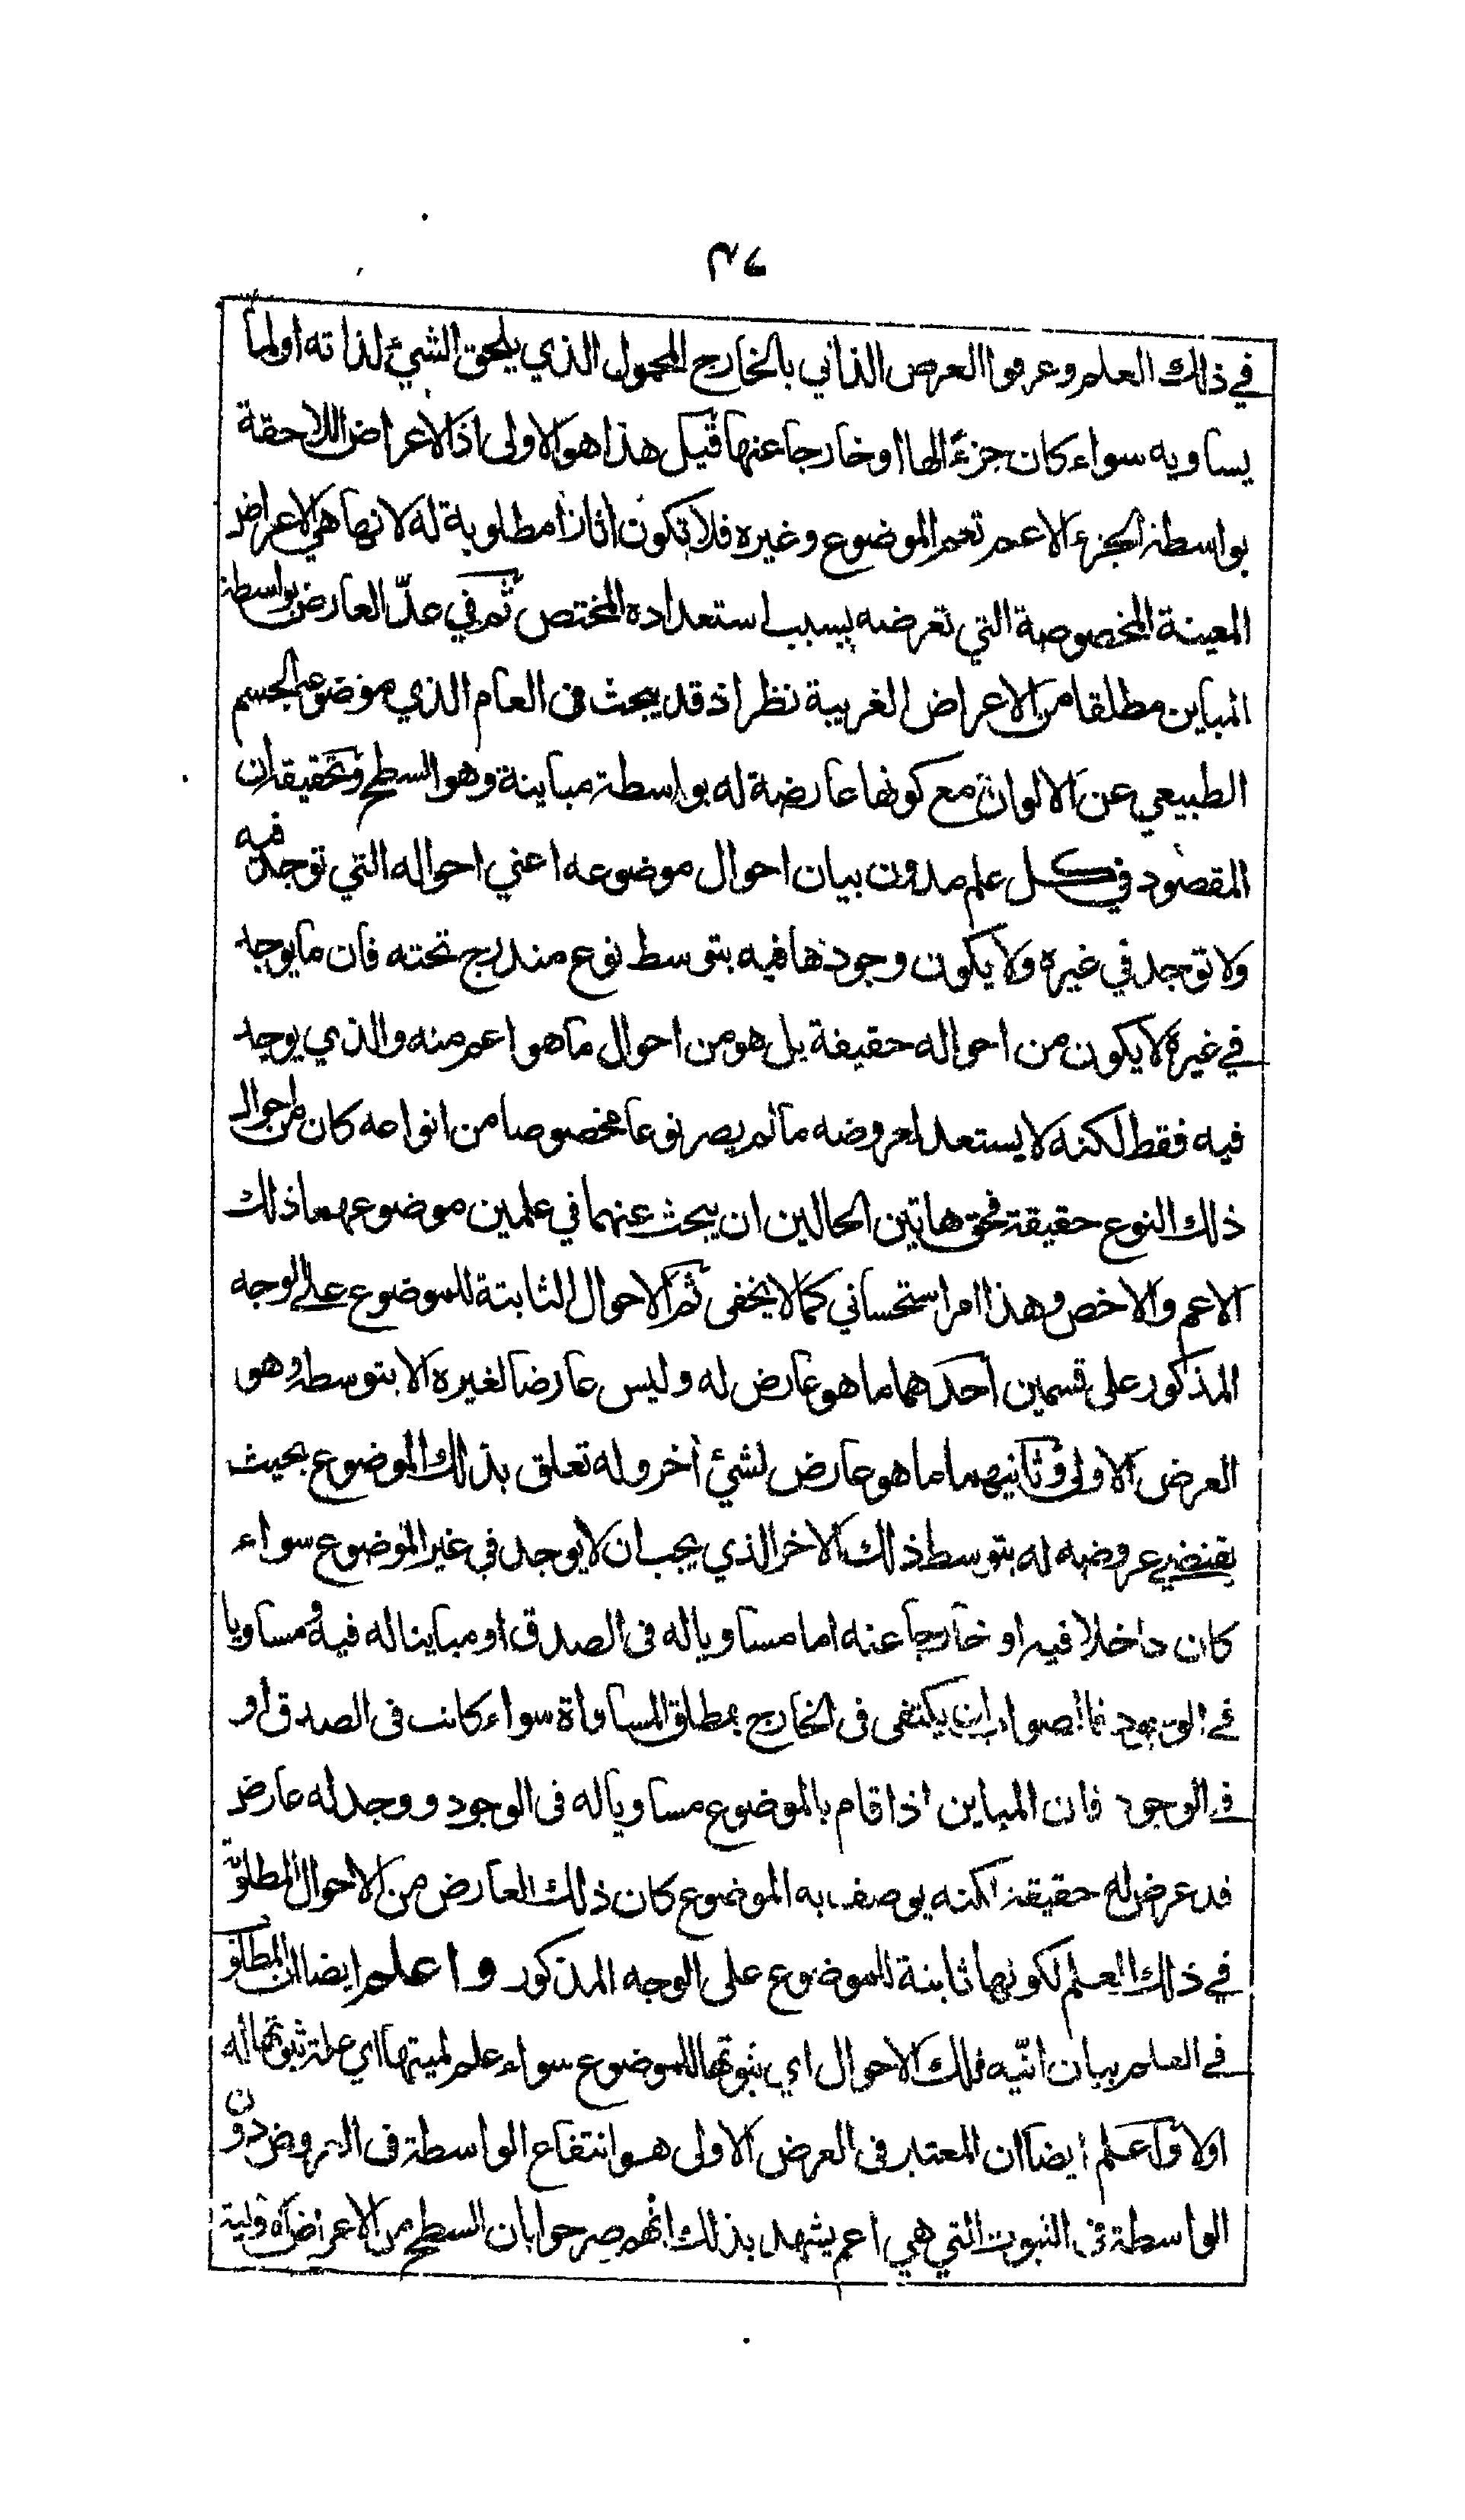 ٣٤
في ذلك العلم وعرفوا العرض الذاتي بالخارج المحمول الذي يلحق الشيئ لذاته او لما
يساويه سواء كان جزءً الها او خارجا عنها قيل هذا هو الاولى اذ الاعراض اللاحقة
بواسطة الجزء الاعم تعم الموضوع وغيره فلا تكون اثارا مطلوبة له لانها هي الاعراض
المعينة المخصوصة التي تعرضه بسبب استعداده المختص ثم في عدّ العارض بواسطة
المباين مطلقا من الاعراض الغريبة نظر اذ قد يبحث فى العام الذي موضوعه الجسم
الطبيعي عن الالوان مع كونها عارضة له بواسطة مباينة وهو السطح وتحقيقه ان
المقصود في كل علم مدون بيان احوال موضوعه اعني احواله التي توجد فيه
ولا توجد في غيره ولا يكون وجودها فيه بتوسط نوع مندرج تحته فان ما يوجد
في غيره لا يكون من احواله حقيقة بل هو من احوال ما هو اعم منه والذي يوجد
فيه فقط لكنه لا يستعد لعروضه ما لم يصر نوعا مخصوصا من انواعه كان من احوال
ذلك النوع حقيقة فحق هاتين الحالين ان يبحث عنهما في علمين موضوعهما ذلك
الاعم والاخص وهذا امر استحساني كما لا يخفى ثم الاحوال الثابتة للموضوع على الوجه
المذكور على قسمين احدهما ما هو عارض له وليس عارضا لغيره الا بتوسطه وهو
العرض الاولى وثانيهما ما هو عارض لشيئ آخر وله تعلق بذلك الموضوع بحيث
يقتضي عروضه له بتوسط ذلك الاخر الذي يجب ان لا يوجد في غير الموضوع سواء
كان داخلا فيه او خارجا عنه اما مساويا له فى الصدق او مباينا له فيه ومساويا
في الوجود فالصواب ان يكتفى فى الخارج بمطلق المساواة سواء كانت فى الصدق او
في الوجود فان المباين اذا قام بالموضوع مساويا له فى الوجود ووجد له عارض
قد عرض له حقيقة لكنه يوصف به الموضوع كان ذلك العارض من الاحوال المطلوبة
في ذلك العلم لكونها ثابتة للموضوع على الوجه المذكور واعلم ايضا ان المطلوب
في العلم بيان انّيه تلك الاحوال اي ثبوتها للموضوع سواء علم لميتها اي علة ثبوتها له
اولا واعلم ايضا ان المعتبر فى العرض الاولى هو انتفاع الواسطة فى العروض دون
الواسطة فى الثبوت التي هي اعم يشهد بذلك انهم صرحوا بان السطح من الاعراض الاولية